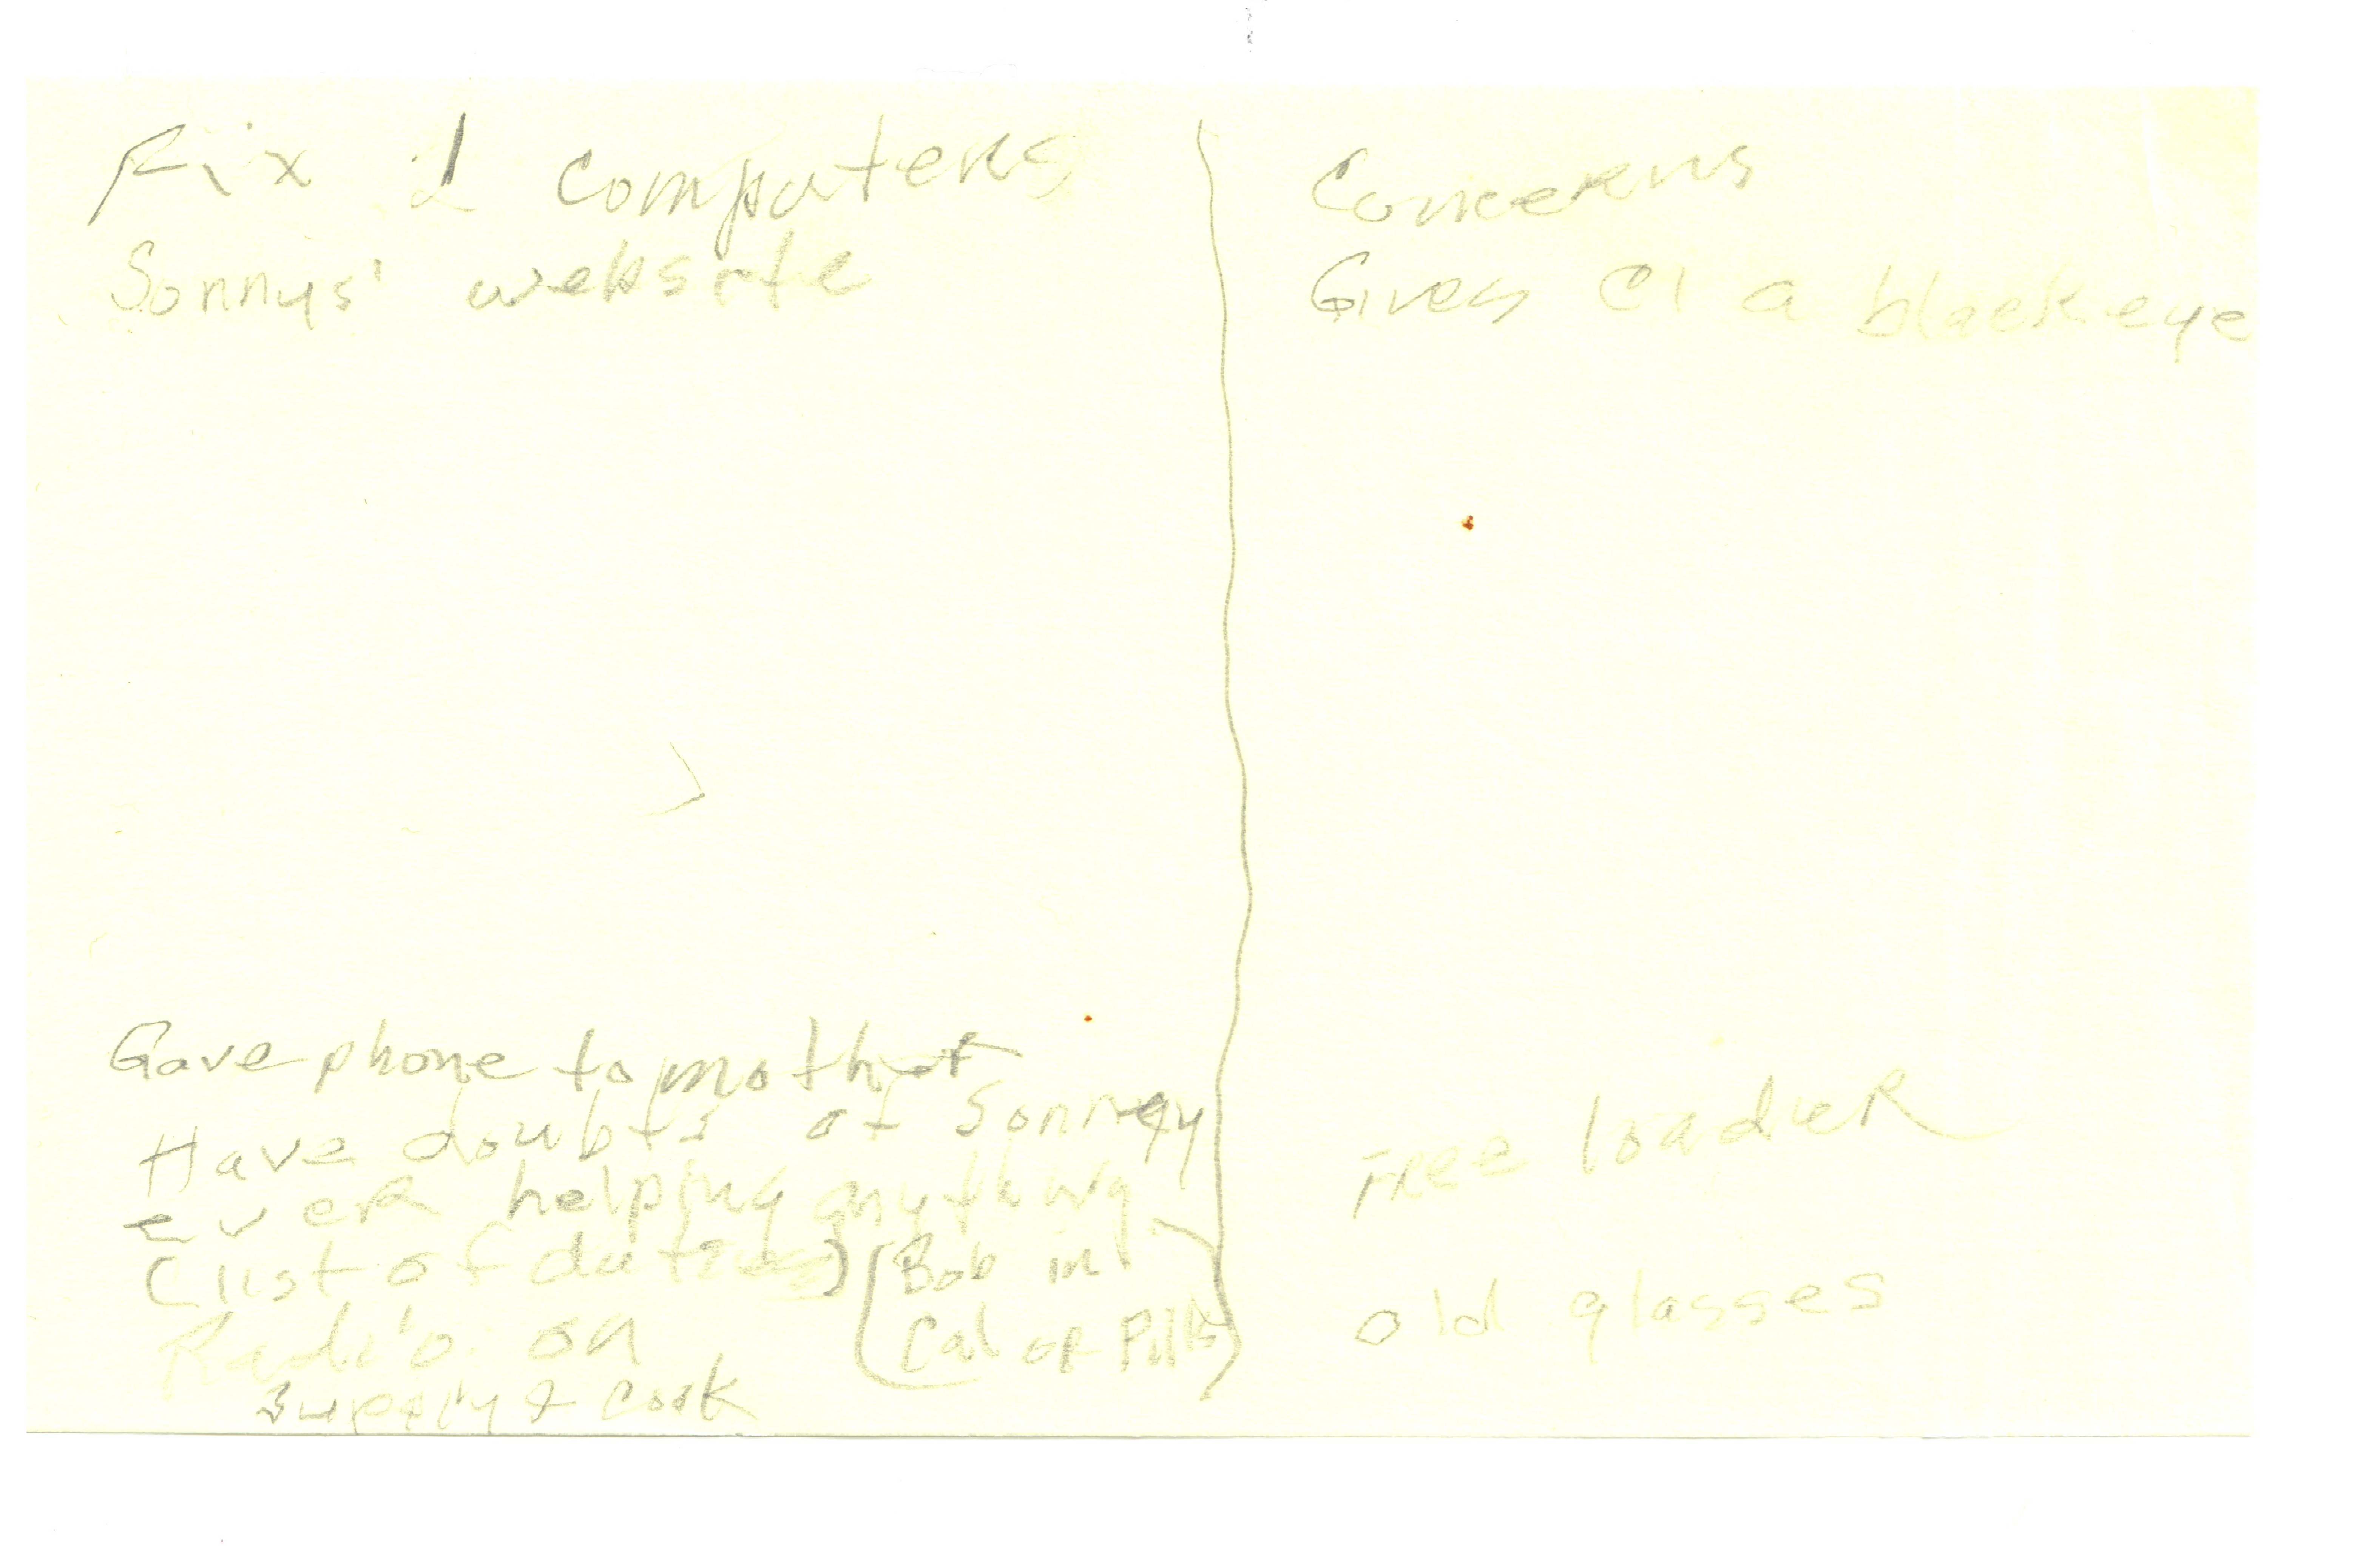 Fix computers
Sonnys' website
Gave phone to mother
Have doubts of Sonney
ever helping anything
(list of duties) (Bob in
Radio on Cal or Pitts)
supply & cook
Concerns
Gives CI a black eye
Free loader
old glasses